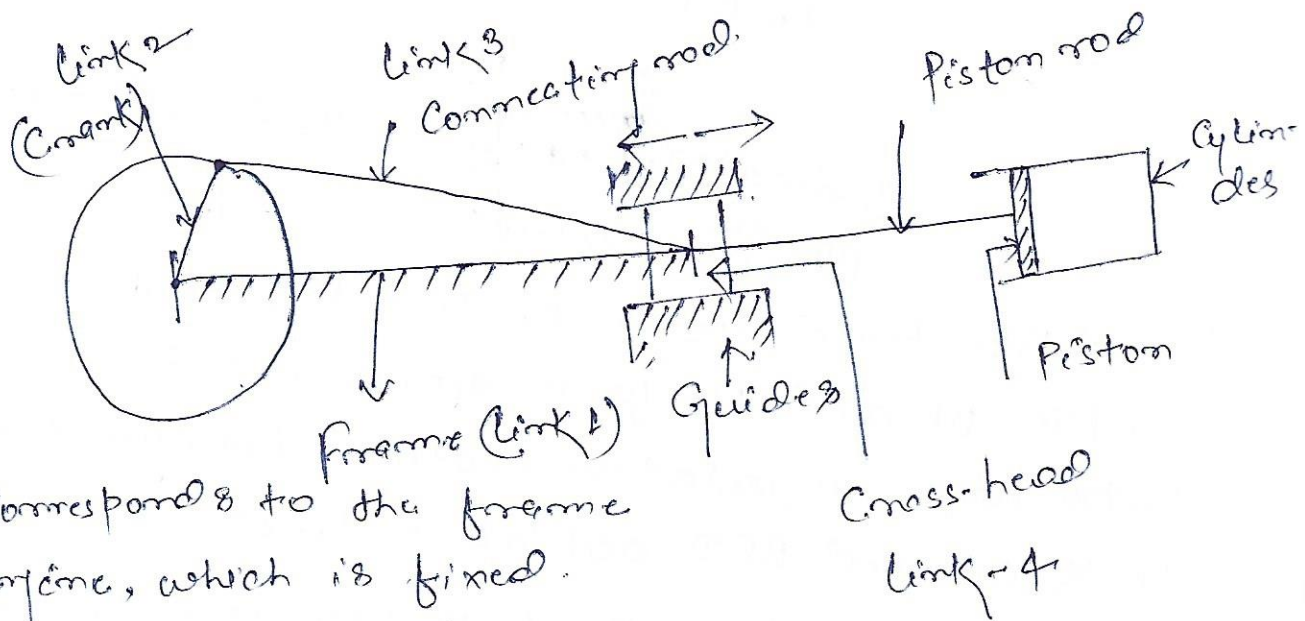 Link 2
(Crank)
Link 3
Connecting rod.
Piston rod
Cylin-
der
Piston
Guides
Frame (Link 1)
Cross-head
Link-4
corresponds to the frame
engine, which is fixed.